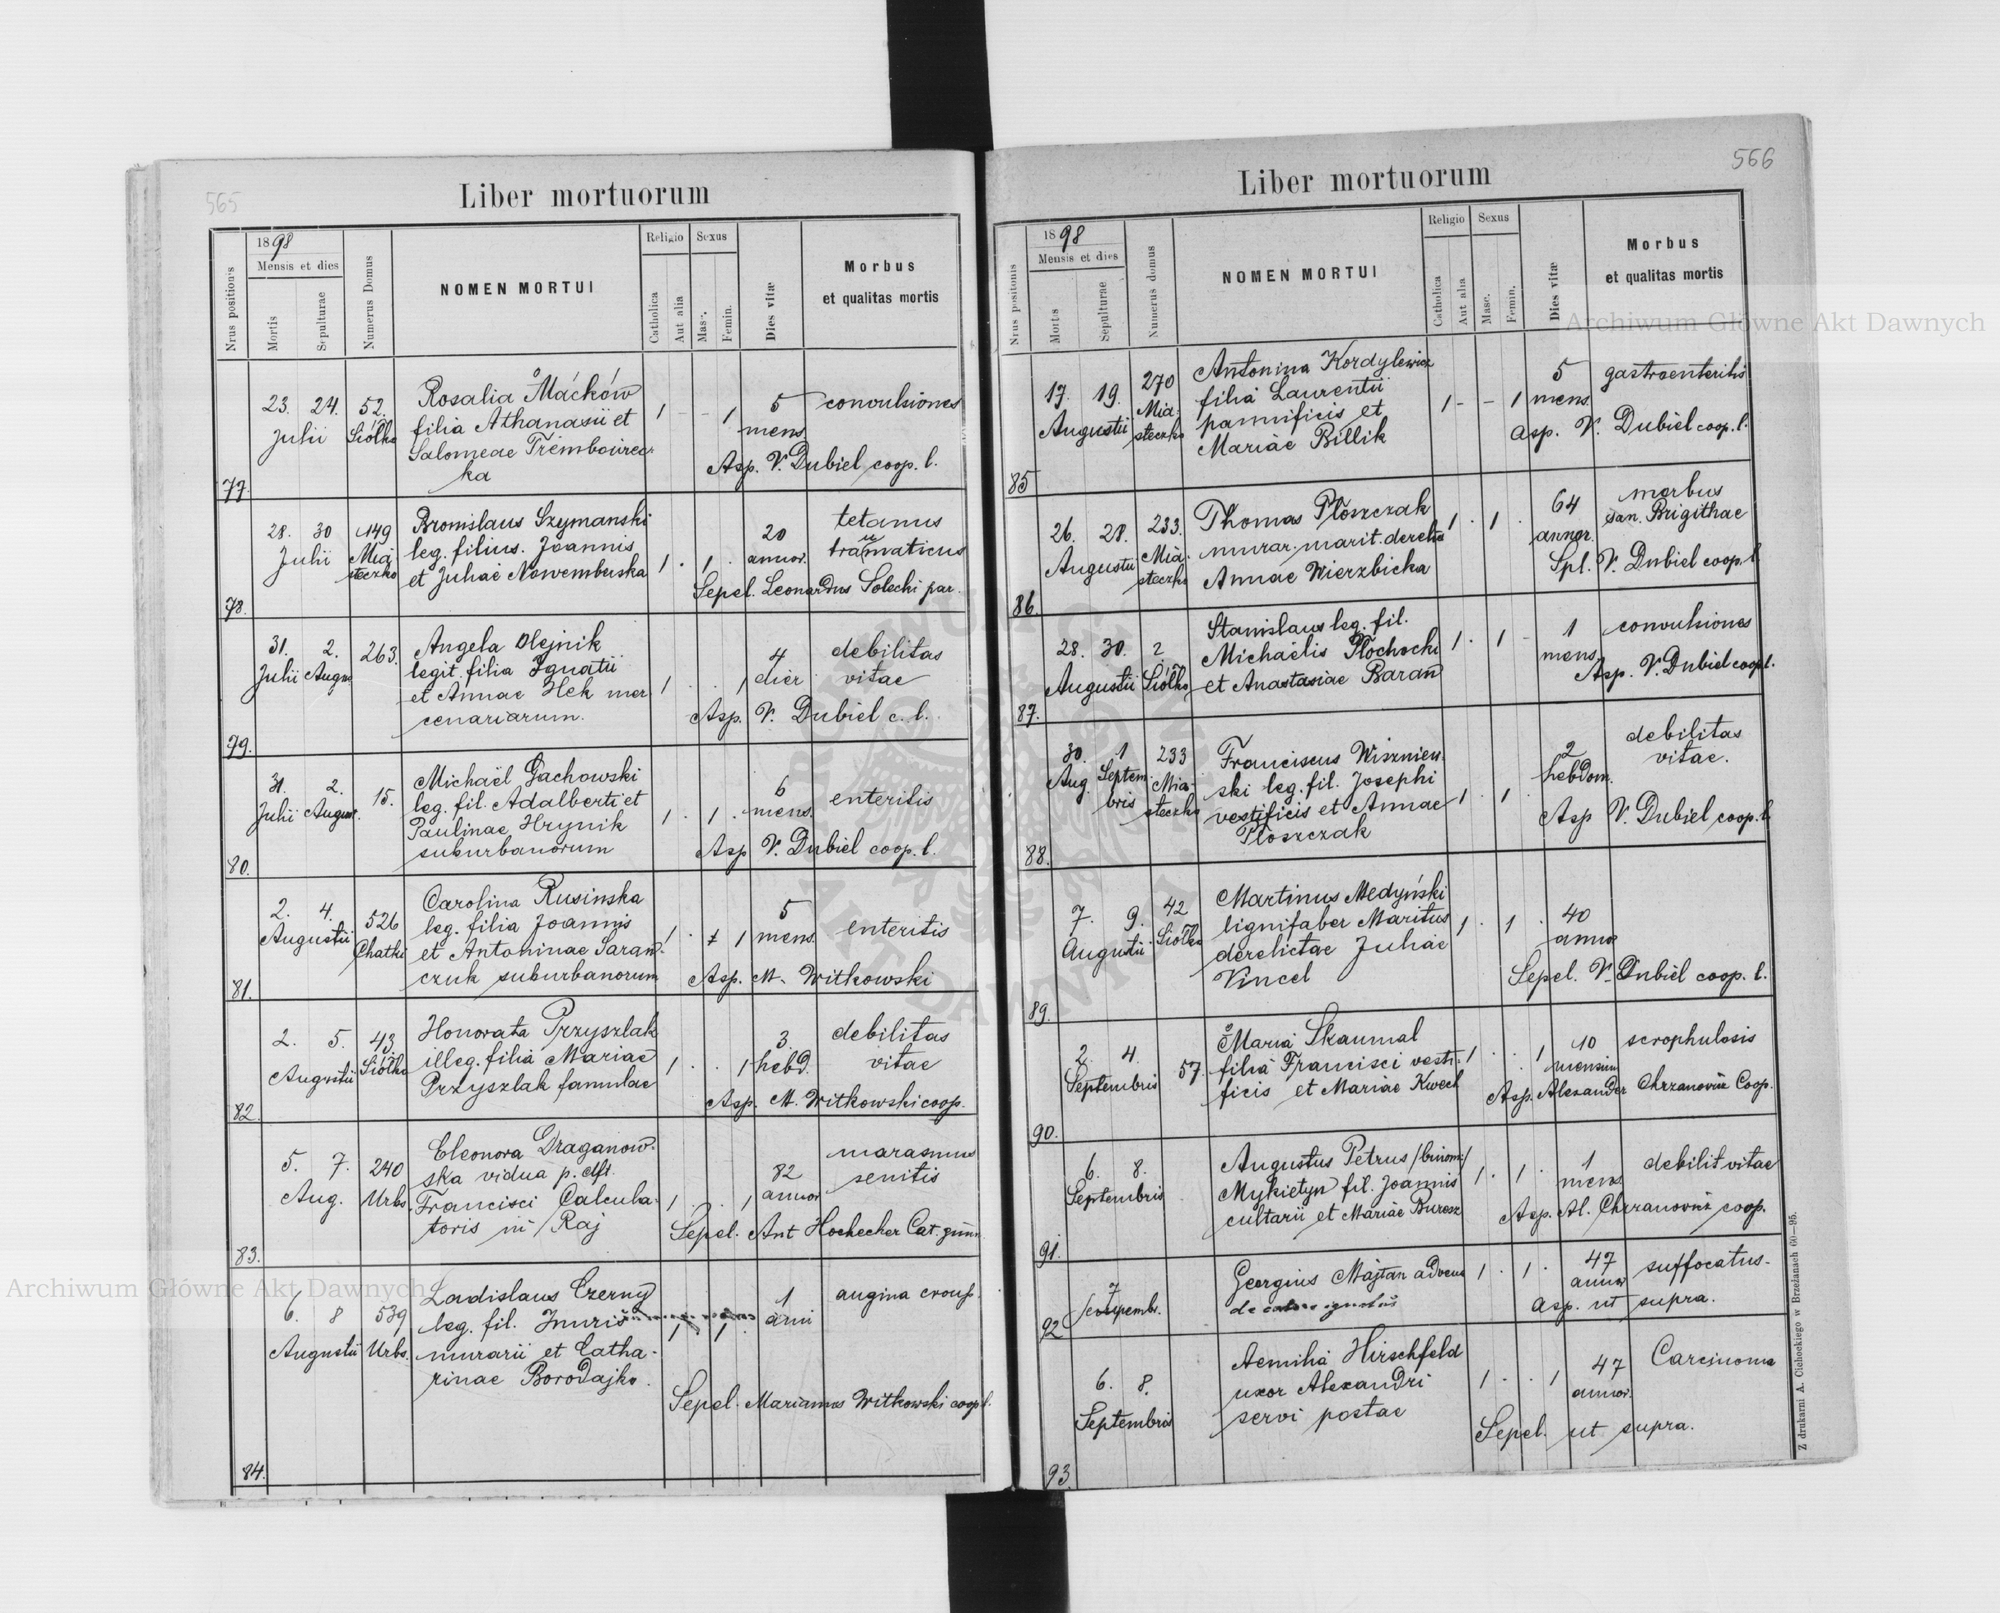 565
Liber mortuorum
Nrus positionis
1898
Mensis et dies
Mortis
Sepulturae
Numerus Domus
NOMEN MORTUI
Religio
Catholica
Aut alia
Sexus
Masc.
Femin.
Dies vitæ
Morbus
et qualitas mortis
77.
23. 24.
Julii
52.
Siółko
Rosalia Maćków
filia Athanasii et
Salomeae Trembowec-
ka
1 - - 1
5
mens
convulsiones
Asp. V. Dubiel coop. l.
78.
28. 30
Julii
149
Mia
steczko
Bronislaus Szymanski
leg. filius. Joannis
et Juliae Nowemburska
1 . 1 .
20
annor.
tetanus
traumaticus
Sepel. Leonardus Solecki par.
79.
31. 2.
Julii Augus
263.
Angela Olejnik
legit. filia Ignatii
et Annae Hek mer
cenariarum.
1 . . 1
4
dier
debilitas
vitae
Asp. V. Dubiel c. l.
80.
31. 2.
Julii August.
15.
Michaël Gachowski
leg. fil. Adalberti et
Paulinae Hrynik
suburbanorum
1 . 1 .
6
mens.
enteritis
Asp V. Dubiel coop. l.
81.
2. 4.
Augustii
526
Chatki
Carolina Rusinska
leg. filia Joannis
et Antoninae Saran-
czuk suburbanorum
1 . 1
5
mens.
enteritis
Asp. M. Witkowski
82.
2. 5.
Augustii
43.
Siółko
Honorata Przyszlak
illeg. filia Mariae
Przyszlak famulae
1 . . 1
3.
hebd.
debilitas
vitae
Asp. M. Witkowski coop.
83.
5. 7.
Aug.
240
Urbs.
Eleonora Draganow-
ska vidua p. dft.
Francisci Calcula-
toris in Raj
1 . . 1
82
annor
marasmus
senilis
Sepel. Ant Hochecker Cat. gimn.
84.
6. 8
Augustii
539
Urbs.
Ladislaus Czerny
leg. fil.
murarii et Catha-
rinae Borodajko.
1 1 .
1
anni
angina croup.
Sepel. Marianus Witkowski coop l.
566
Liber mortuorum
Nrus positionis
1898
Mensis et dies
Mortis
Sepulturae
Numerus domus
NOMEN MORTUI
Religio
Catholica
Aut alia
Sexus
Masc.
Femin.
Dies vitæ
Morbus
et qualitas mortis
85
17. 19.
Augustii
270
Mia-
steczko
Antonina Kordylewicz
filia Laurentii
pannificis et
Mariae Billik
1 - - 1
5
mens
gastroenteritis
Asp. V. Dubiel coop. l.
86.
26. 28.
Augustii
233.
Mia-
steczko
Thomas Płoszczak
murar. marit. derelic
Annae Wierzbicka
1 . 1 .
64
annor.
morbus
san. Brigithae
Spl. V. Dubiel coop. l
87.
28. 30.
Augustii
2
Siółko
Stanislaus leg. fil.
Michaëlis Płochocki
et Anastasiae Baran
1 . 1 -
1
mens.
convulsiones
Asp. V. Dubiel coop l.
88.
30. 1
Aug. Septem-
bris
233
Mia-
steczko
Franciscus Wiszniew-
ski leg. fil. Josephi
vestificis et Annae
Płoszczak
1 . 1 .
2
hebdom.
debilitas
vitae.
Asp V. Dubiel coop. l
89.
7. 9.
Augustii
42
Siółko
Martinus Medyński
lignifaber Maritus
derelictae Juliae
Vincel
1 . 1 .
40
annor
Sepel. V. Dubiel coop. l.
90.
2. 4.
Septembris
57.
Maria Skaumal
filia Francisci vesti-
ficis et Mariae Kweck
1 . . 1
10
mensium
scrophulosis
Asp. Alexander Chrzanowicz Coop.
91.
6. 8.
Septembris
Augustus Petrus /binom:/
Mykietyn fil. Joannis
cultarii et Mariae Buresz
1 . 1 .
1
mens.
debilit vitae
Asp. Al. Chrzanowicz coop.
92
7
Georgius Majtan advena
1 . 1 .
47
annor
suffocatus.
Asp. ut supra.
93.
6. 8.
Septembris
Aemilia Hirschfeld
uxor Alexandri
servi postae
1 . . 1
47
annor.
Carcinoma
Sepel. ut supra.
Z drukarni A. Cichockiego w Brzeżanach 60—95.
Archiwum Główne Akt Dawnych
Archiwum Główne Akt Dawnych